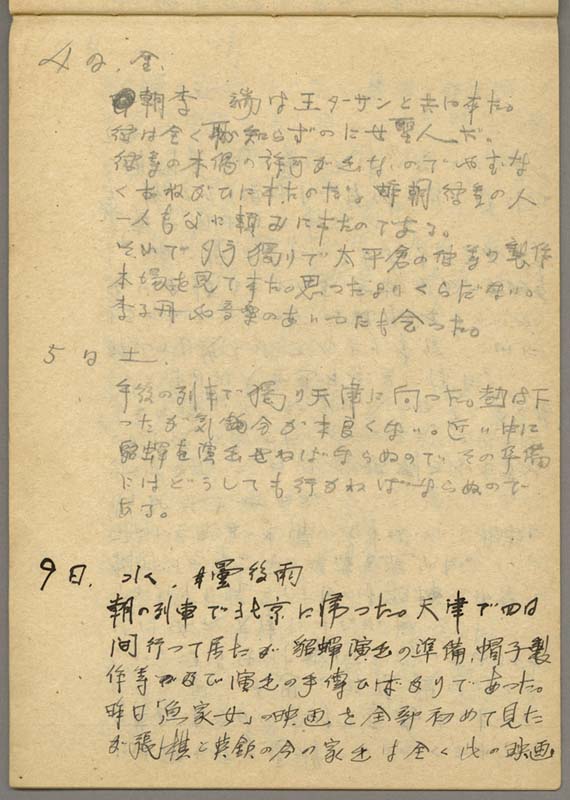 4日. 金.
朝李 瑞は王ターサンと共に来た。
彼は全く恥知らずのに せ聖人だ。
彼等の本倡の許可が出ないのでやむな
くおねがひに来たのだ。昨朝彼等の人
一人も父に頼みに来たのである。
それで夕方獨りで太平倉の 製作
本場を見て来た。思ったよりくらだない。
李子丹 音楽のあいつにも会った。
5日 土.
午後の列車で獨り天津に向った。熱は下
ったが気分が未良くない。近い中に
貂蝉を演出せねばならぬので その準備
にはどうしても行かねばならぬので
ある。
9日. 水. 曇後雨
朝の列車で北京に帰った。天津で四日
间行って居たが 貂蝉演出の準備、帽子製
作等及び演出の手傳ひばかりであった。
昨日「漁家女」の映画を全部初めて見た
が張 棋と の今の家 は全く此の映画